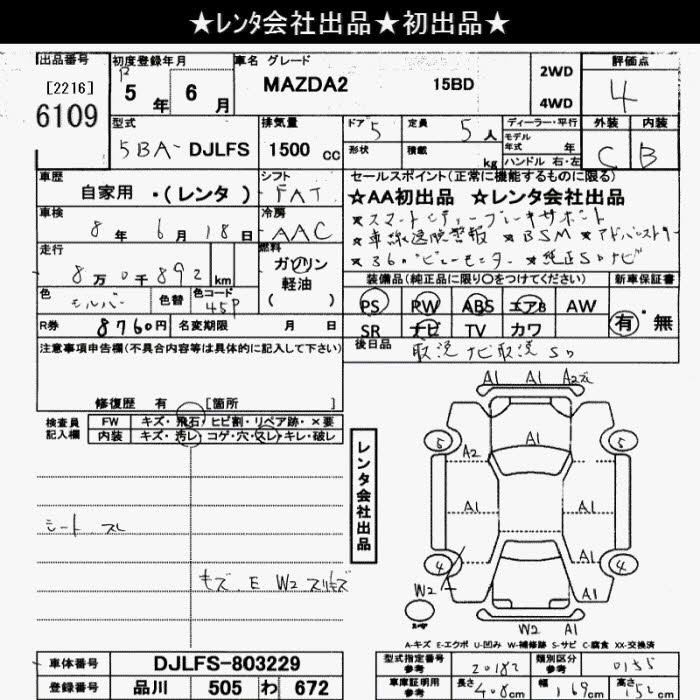 ★レンタ会社出品★初出品★
出品番号 初度登録年月 車名 グレード 評価点
[2216] R 5年 6月 MAZDA2 15BD 2WD 4
6109 4WD
型式 5BA-DJLFS 排気量 1500 cc ドア 5 定員 5人 ディーラー・平行 外装 内装
形状 積載 kg モデル年式 年 C B
ハンドル 右・左
車歴 自家用 ・(レンタ) シフト FAT セールスポイント(正常に機能するものに限る)
★AA初出品 ★レンタ会社出品
車検 8年 6月 18日 冷房 AAC ★スマートシティブレーキサポート
★車線逸脱警報 ★BSM ★アドバンストキー
走行 8万0千892 km 燃料 ガソリン 軽油 ( ) ★360°ビューモニター ★純正SDナビ
色 シルバー 色替 色コード 45P 装備品(純正品に限り○をつけてください) 新車保証書
PS PW ABS エアB AW 有・無
R券 8760円 名変期限 月 日 SR ナビ TV カワ
注意事項申告欄(不具合内容等は具体的に記入して下さい) 後日品 取説 ナビ取説 SD
修復歴 有 [箇所
検査員記入欄 FW キズ・飛石・ヒビ割・リペア跡・×要
内装 キズ・汚レ・コゲ・穴・スレ・キレ・破レ
レンタ会社出品
シート スレ
キズ.E W2 スリキズ
A1 A1 A2
5 A1 5
A2 A1
A1 A1
A1
4 4
W2 A1
W2 A1
A-キズ E-エクボ U-凹み W-補修跡 S-サビ C-腐食 XX-交換済
車体番号 DJLFS-803229 型式指定番号 参考 20182 類別区分 参考 0155
登録番号 品川 505 わ 672 車庫証明用 参考 長さ 408cm 幅 169cm 高さ 152cm